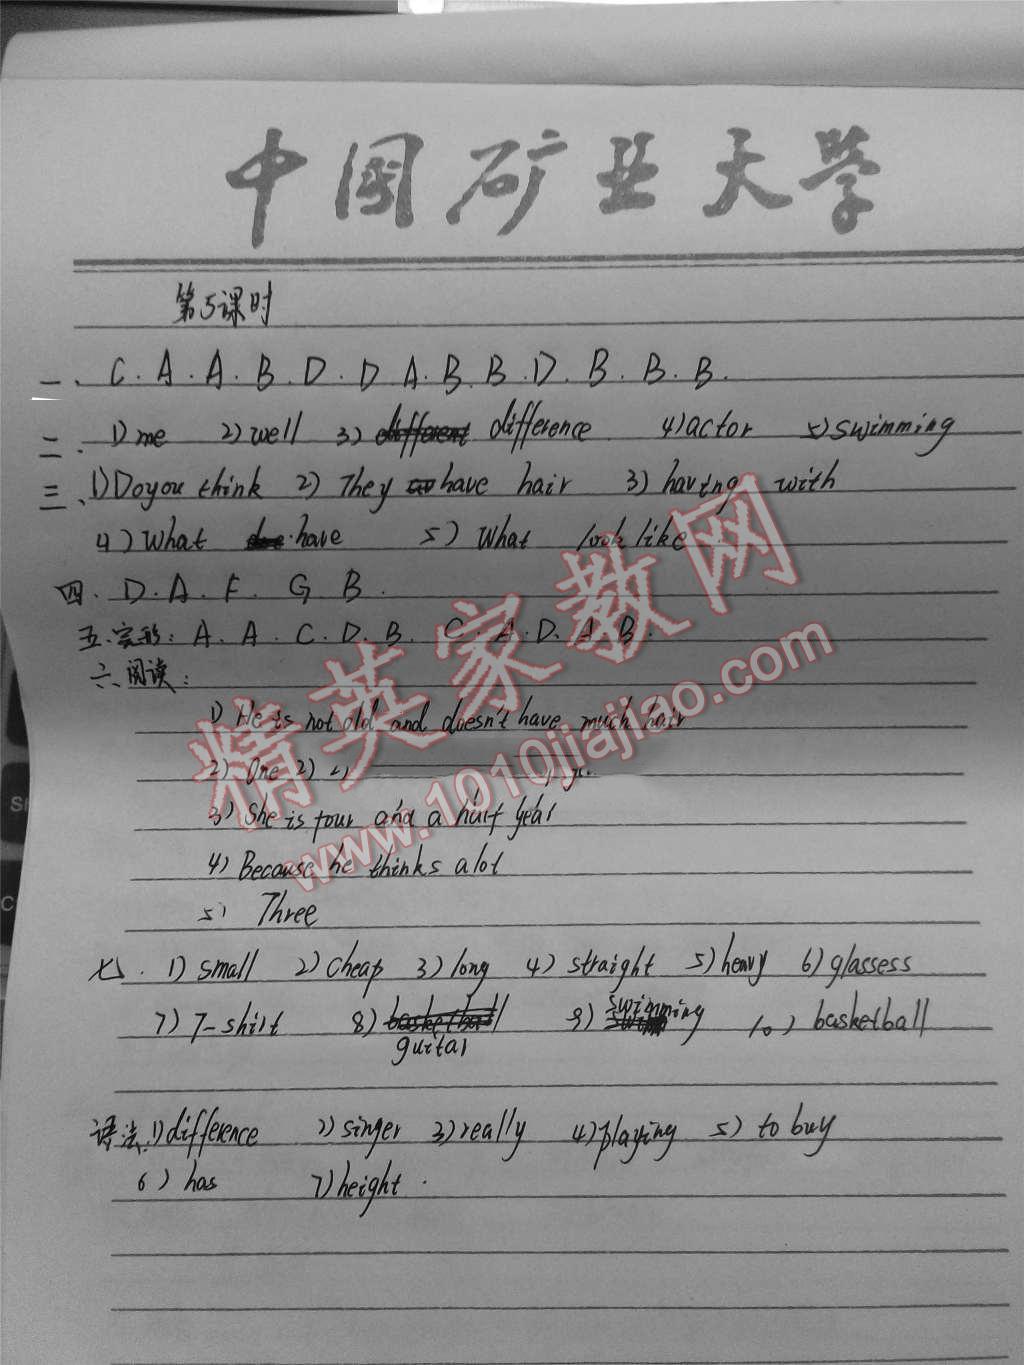 中国矿业大学
第5课时
一、C.A.A.B.D.D A.B.B.D.B.B.B.
二、1)me 2)well 3)different difference 4)actor 5)swimming
三、1)Do you think 2) They have hair 3) having with
4) What have 5) What look like.
四. D.A.F. G B.
五.完形: A.A.C.D.B. C.A.D.A.B.
六、阅读:
1) He is not old and doesn't have much hair
2) One 2)
3) She is four and a half year
4) Because he thinks a lot
5) Three
七. 1) small 2) cheap 3) long 4) straight 5) heavy 6) glassess
7) T-shirt 8) basketball 9) swimming 10) basketball
guitar
语法.1)difference 2) singer 3) really 4) playing 5) to buy
6) has 7) height.
精英家教网
www.1010jiajiao.com